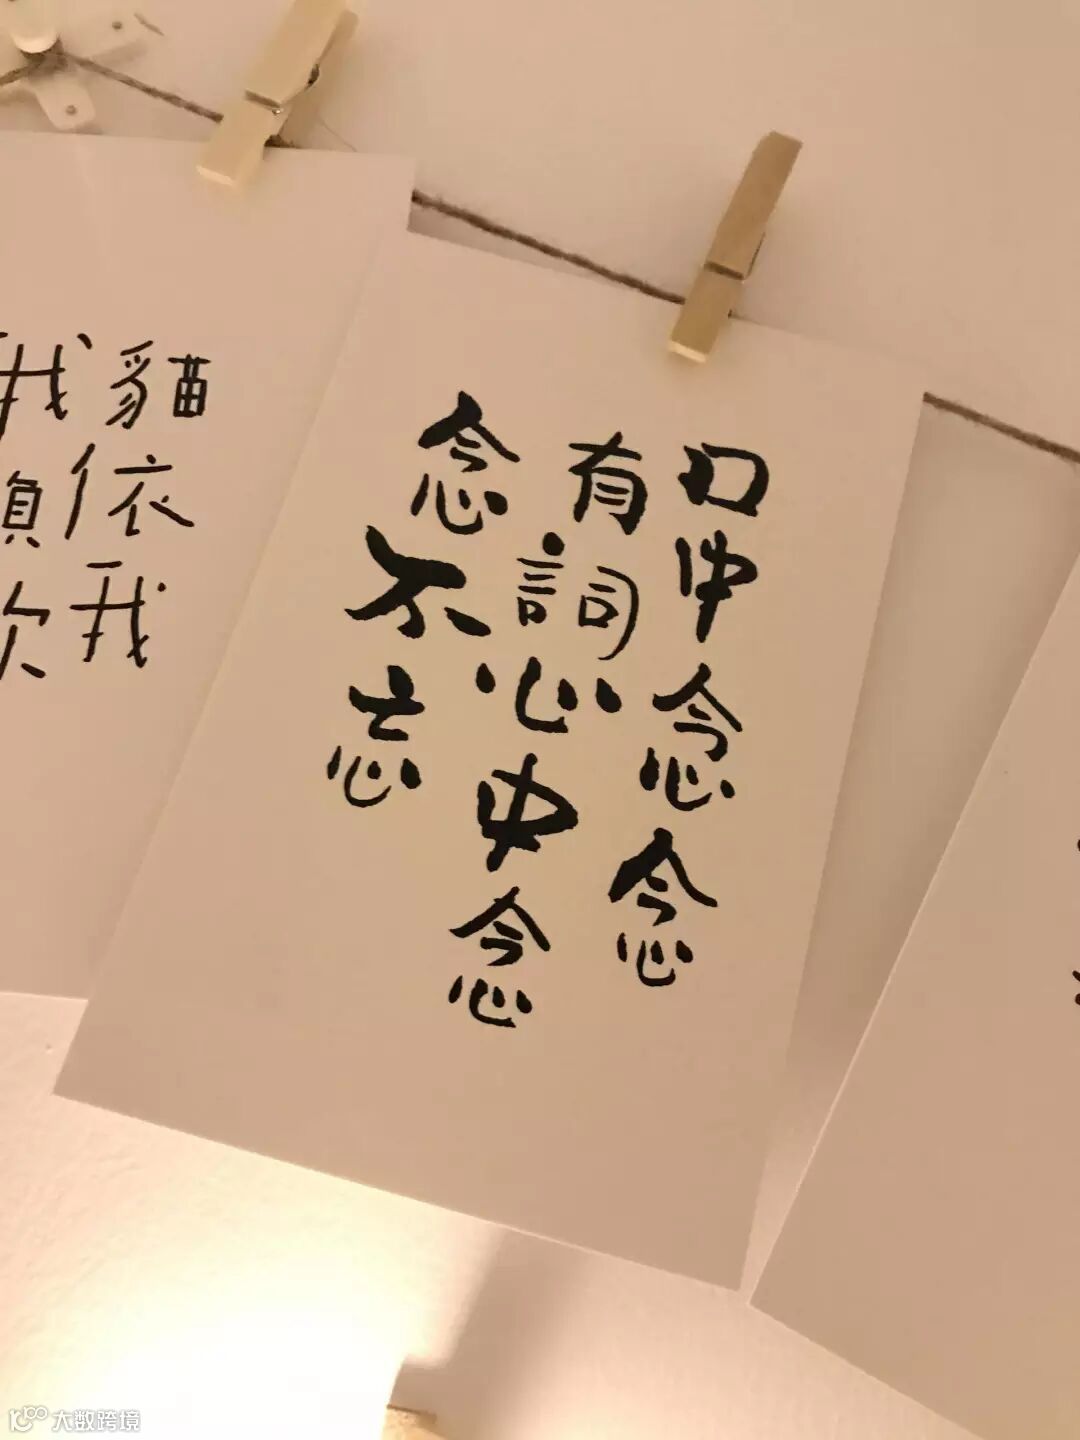 口中念念
有詞心中念
念不忘
貓依我
我
欠
大数跨境